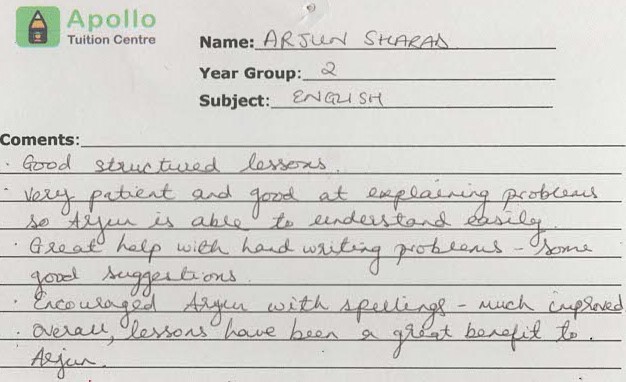 Apollo
Tuition Centre
Name: ARJUN SHARAD
Year Group: 2
Subject: ENGLISH
Coments:
· Good structured lessons.
· very patient and good at explaining problems
so Arjun is able to understand easily.
· Great help with hand writing problems - some
good suggestions.
· Encouraged Arjun with spellings - much improved
· overall, lessons have been a great benefit to
Arjun.